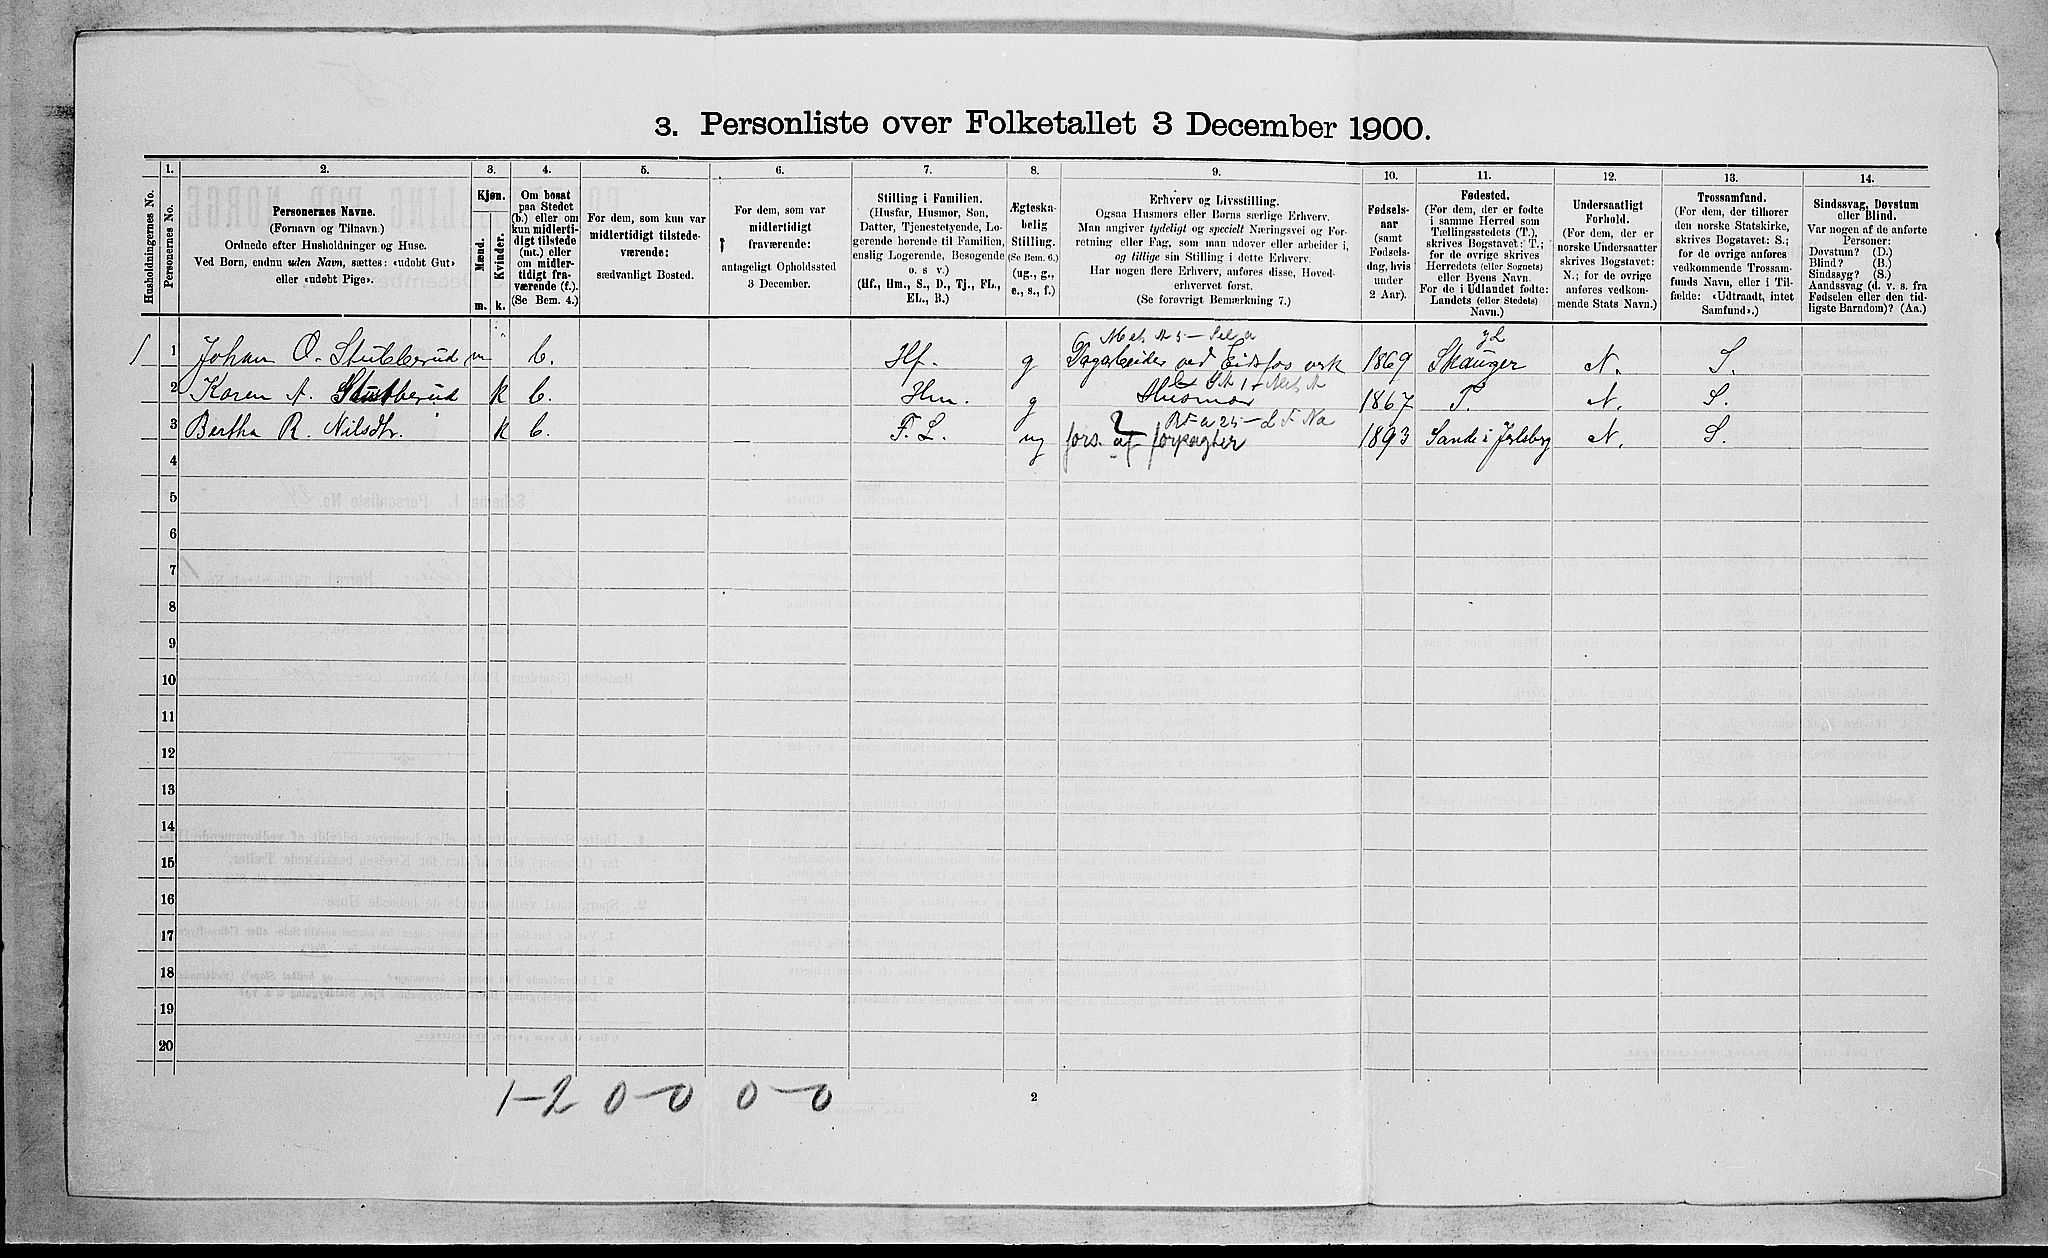 3. Personliste over Folketallet 3 December 1900.
1. 2. 3. 4. 5. 6. 7. 8. 9. 10. 11. 12. 13. 14.
Husholdningernes No.
Personernes No.
Personernes Navne.
(Fornavn og Tilnavn.)
Ordnede efter Husholdninger og Huse.
Ved Børn, endnu uden Navn, sættes: «udøbt Gut»
eller «udøbt Pige».
Kjøn.
Mænd.
Kvinder.
m. k.
Om bosat
paa Stedet
(b.) eller om
kun midlerti-
digt tilstede
(mt.) eller
om midler-
tidigt fra-
værende (f.).
(Se Bem. 4.)
For dem, som kun var
midlertidigt tilstede-
værende:
sædvanligt Bosted.
For dem, som var
midlertidigt
fraværende:
antageligt Opholdssted
3 December.
Stilling i Familien.
(Husfar, Husmor, Søn,
Datter, Tjenestetyende, Lo-
gerende hørende til Familien,
enslig Logerende, Besøgende
o. s. v.)
(Hf., Hm., S., D., Tj., FL.,
EL., B.)
Ægteska-
belig
Stilling.
(Se Bem. 6.)
(ug., g.,
e., s., f.)
Erhverv og Livsstilling.
Ogsaa Husmors eller Børns særlige Erhverv.
Man angiver tydeligt og specielt Næringsvei og For-
retning eller Fag, som man udøver eller arbeider i,
og tillige sin Stilling i dette Erhverv.
Har nogen flere Erhverv, anføres disse, Hoved-
erhvervet først.
(Se forøvrigt Bemærkning 7.)
Fødsels-
aar
(samt
Fødsels-
dag, hvis
under
2 Aar).
Fødested.
(For dem, der er fødte
i samme Herred som
Tællingsstedets (T.),
skrives Bogstavet: T.;
for de øvrige skrives
Herredets (eller Sognets)
eller Byens Navn.
For de i Udlandet fødte:
Landets (eller Stedets)
Navn.)
Undersaatligt
Forhold.
(For dem, der er
norske Undersaatter
skrives Bogstavet:
N.; for de øvrige
anføres vedkom-
mende Stats Navn.)
Trossamfund.
(For dem, der tilhører
den norske Statskirke,
skrives Bogstavet: S.;
for de øvrige anføres
vedkommende Trossam-
funds Navn, eller i Til-
fælde: «Udtraadt, intet
Samfund».)
Sindssvag, Døvstum
eller Blind.
Var nogen af de anførte
Personer:
Døvstum? (D.)
Blind? (B.)
Sindssyg? (S.)
Aandssvag (d. v. s. fra
Fødselen eller den tid-
ligste Barndom)? (Aa.)
1 1 Johan O. Stubberud m b. Hf. g Dagarbeider ved Eidsfos verk 1869 Skauger N. S.
2 Karen A. Stubberud k b. Hm. g Husmor 1867 T. N. S.
3 Bertha R. Nilsdtr. k b. F. L. ug fors. af forpagter 1893 Sande i Jarlsberg N. S.
4
5
6
7
8
9
10
11
12
13
14
15
16
17
18
19
20
1-2 0-0 0-0
2